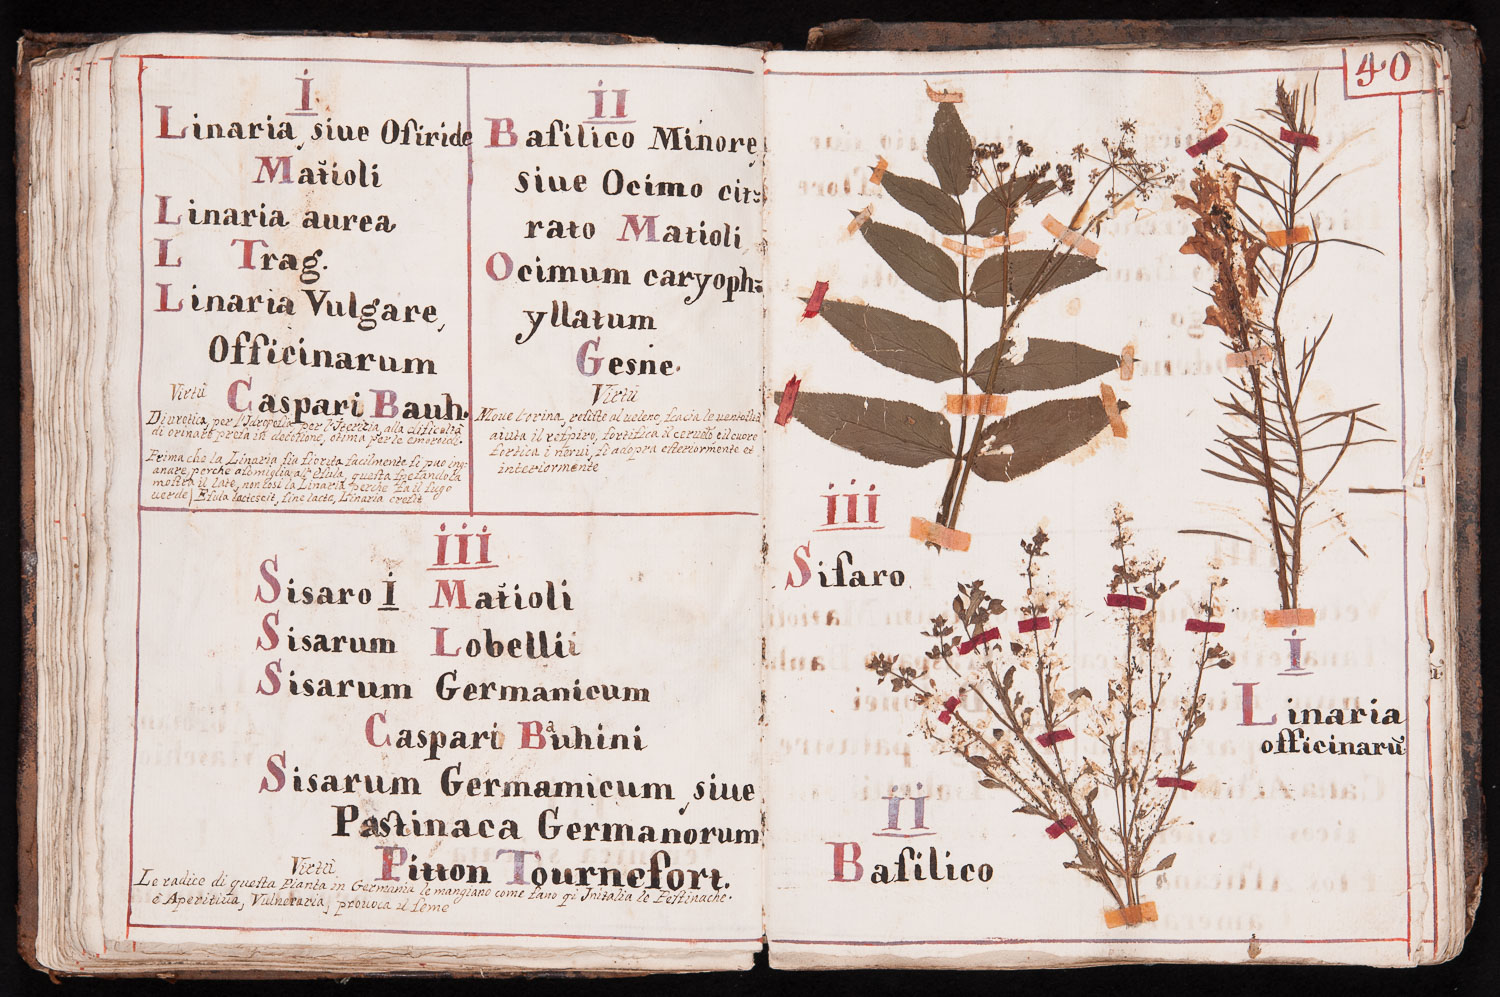 i
Linaria, siue Ofiride
Matioli
Linaria aurea
L Trag.
Linaria Vulgare,
Officinarum
Caspari Bauh.
Virtù
Diuretica, per l'Idropesia, per l'Iterizia, alla dificoltà
di orinare presa in decotione, otima per le emoroidi.
Prima che la Linaria sia fiorita facilmente si può ing:
anare, perche asomiglia all'Esula, questa spezandola
mostra il late, non cosi la Linaria perche fa il sugo
uerde | Esula lactescit, sine lacte, Linaria crescit
ii
Bafilico Minore,
siue Ocimo cit:
rato Matioli
Ocimum caryoph:
yllatum
Gesne.
Virtù
Moue l'orina, resiste al veleno, lacia le ventosità
aiuta il respiro, fortifica il ceruelo e il cuore
fortica i nerui, si adopra esteriormente et
interiormente
iii
Sisaro i Matioli
Sisarum Lobellii
Sisarum Germanicum
Caspari Bauhini
Sisarum Germamicum, siue
Pastinaca Germanorum
Pitton Tournefort.
Virtù
Le radice di questa Pianta in Germania le mangiano come fano qì Initalia le Pestinache.
è Aperitiua, Vulneraria, prouoca il seme
40
iii
Sifaro
i
Linaria
officinarũ
ii
Bafilico